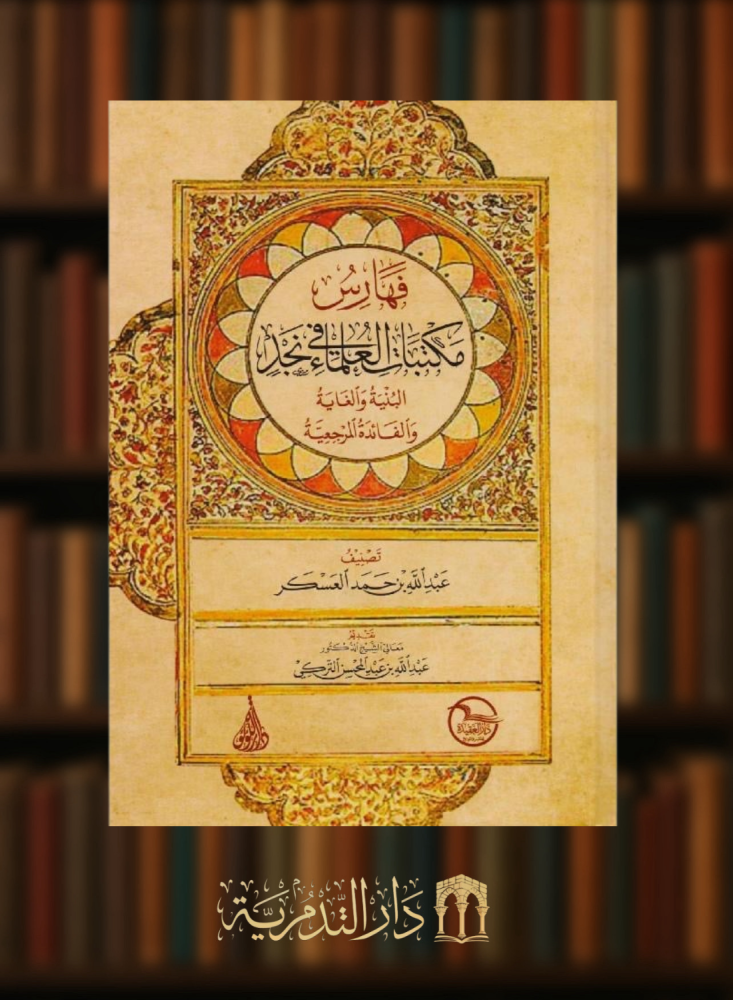 فَهَارِسُ
مَكتَبَاتِ العُلَمَاءِ فِي نَجْدٍ
البُنْيَةُ وَالغَايَةُ
وَالفَائدَةُ المَرْجِعِيَّةُ
تَصْنِيفُ
عَبْدِ اللَّهِ بْنِ حَمَد العَسْكَر
تقديم
معالي الشيخ الدكتور
عَبْدِ اللَّه بن عَبْدِ المُحْسِن التركي
دار العقيدة
دَار التَّدمُريَّة